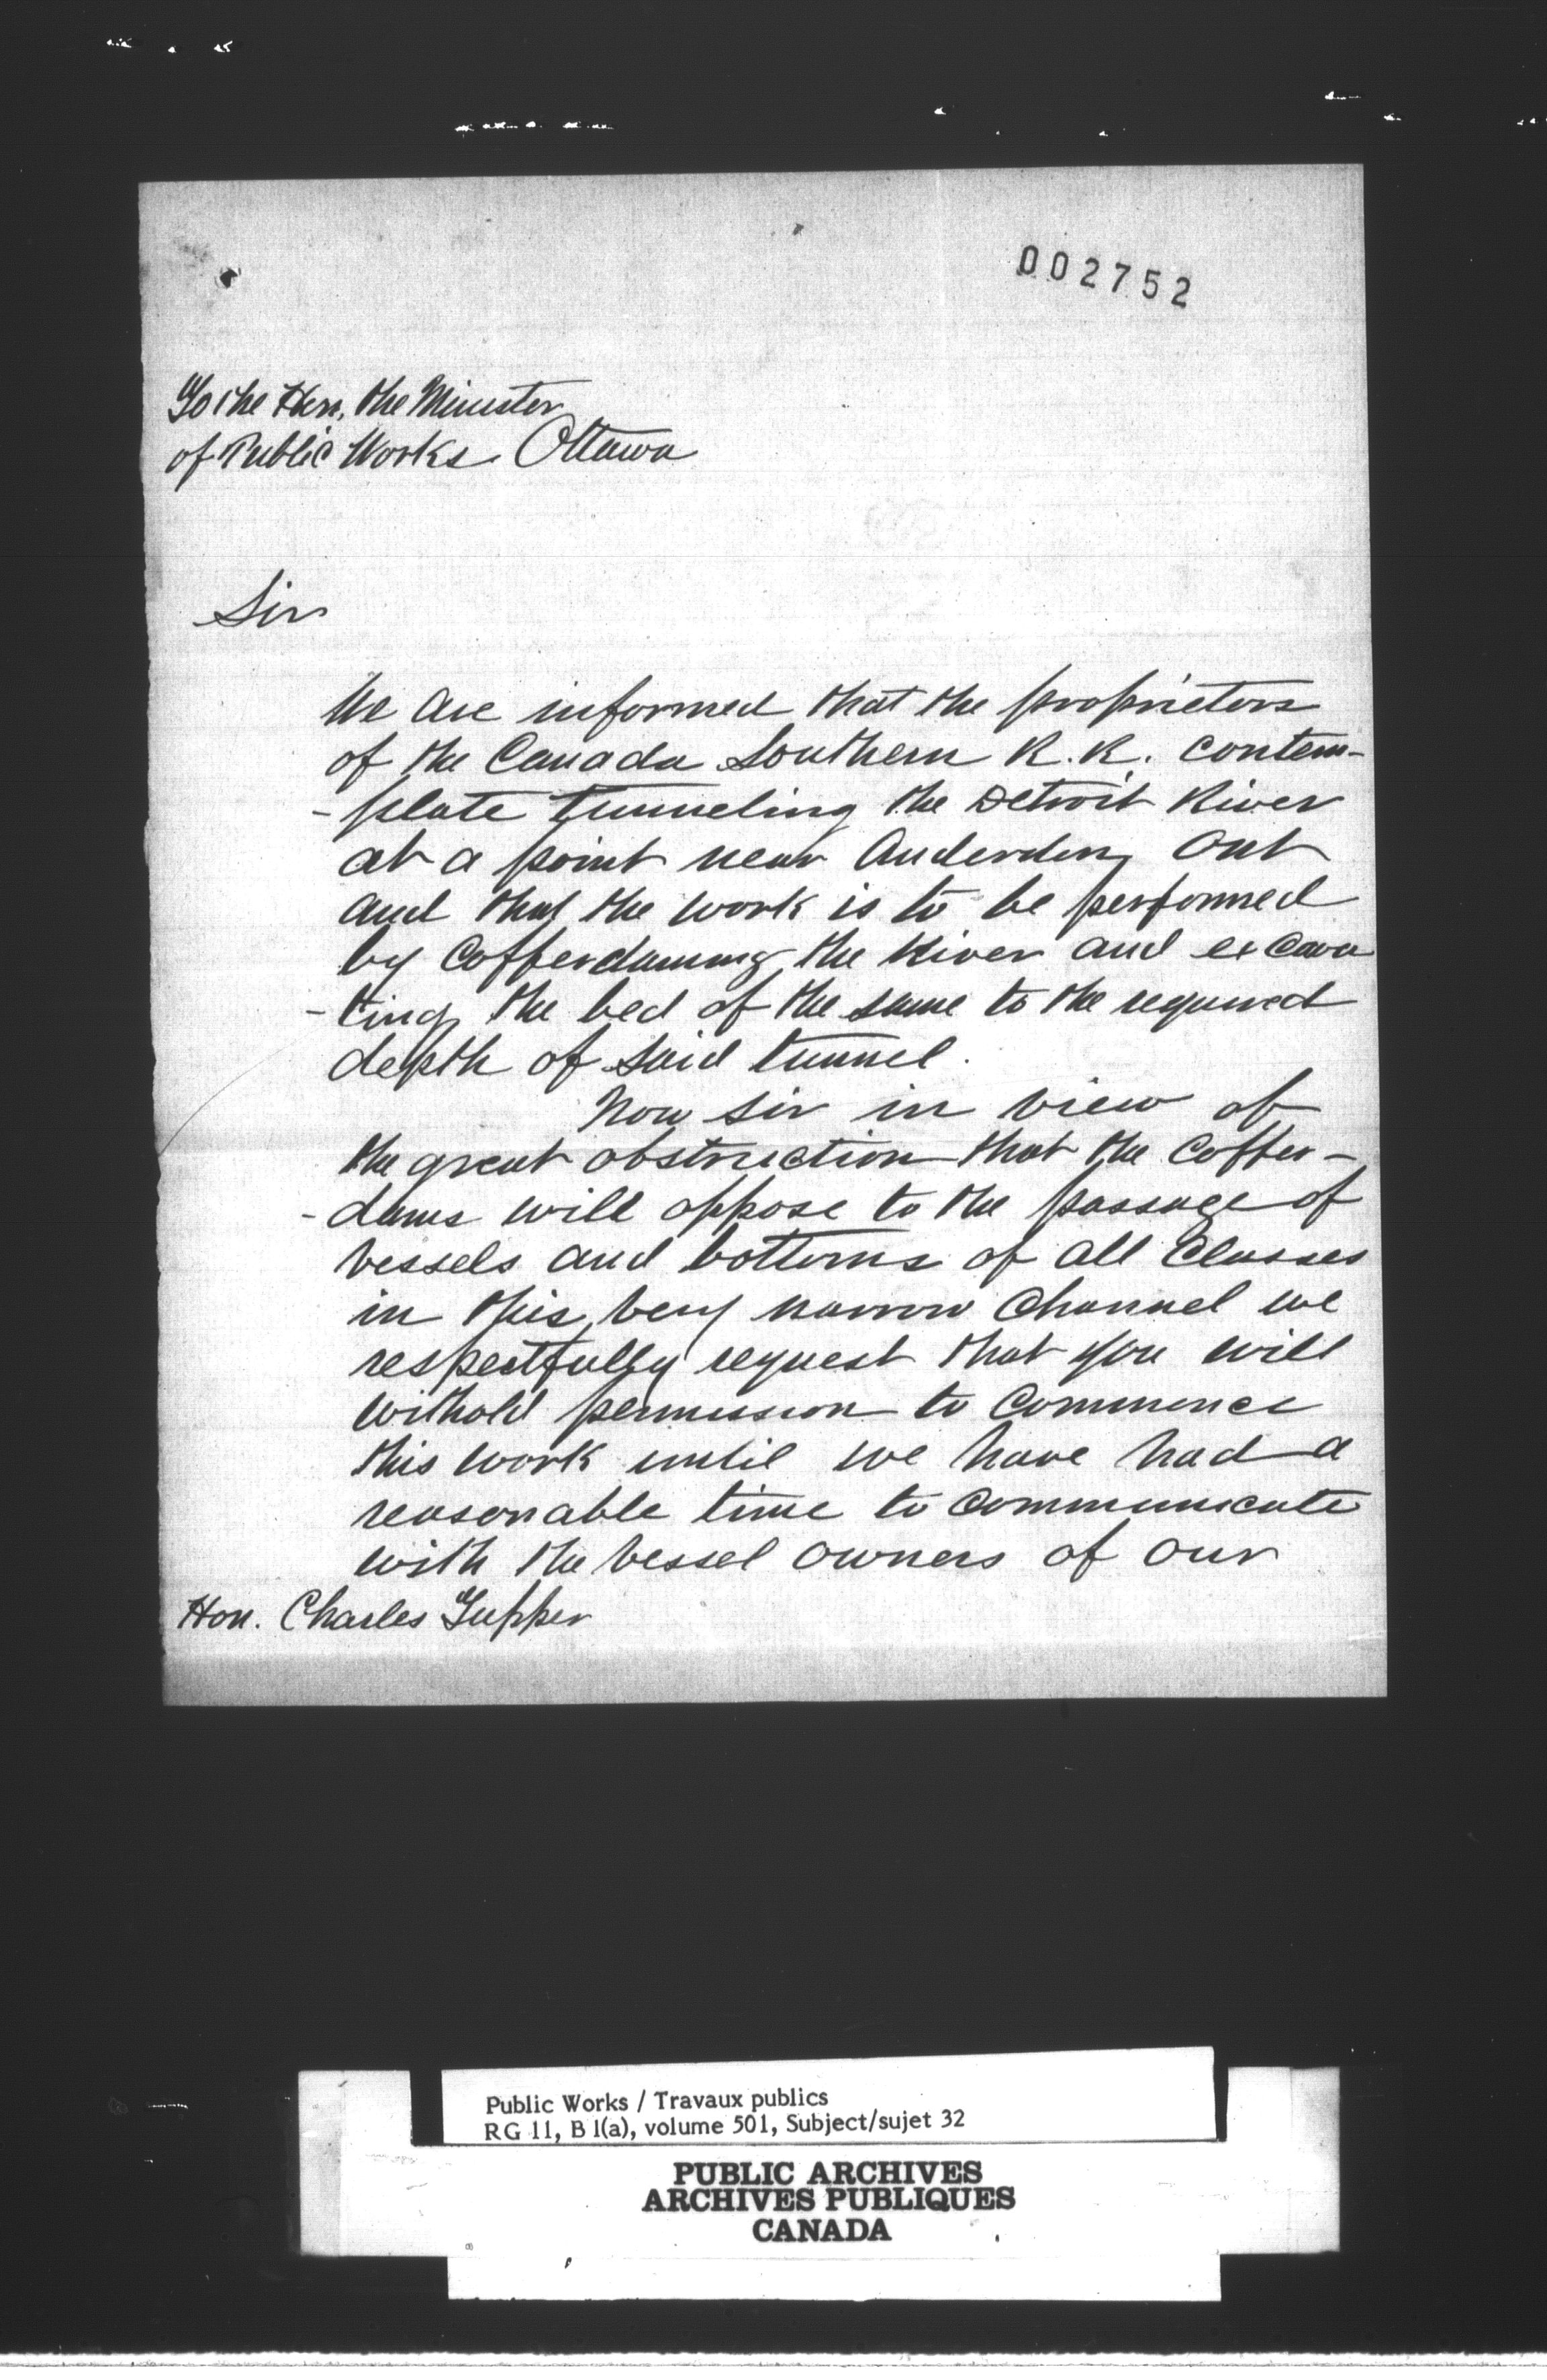 002752
To the Hon. the Minister
of Public Works Ottawa
Sir
We are informed that the proprietors
of the Canada Southern R.R. contem-
-plate tunneling the Detroit River
at a point near Anderdon, Ont
and that the work is to be performed
by Cofferdaming the River and excava
-ting the bed of the same to the required
depth of said tunnel.
Now Sir in view of
the great obstruction that the Coffer-
-dams will oppose to the passage of
vessels and bottoms of all Classes
in this very narrow Channel we
respectfully request that you will
withold permission to Commence
this work until we have had a
reasonable time to Communicate
with the vessel owners of our
Hon. Charles Tupper
Public Works / Travaux publics
RG 11, B 1(a), volume 501, Subject/sujet 32
PUBLIC ARCHIVES
ARCHIVES PUBLIQUES
CANADA